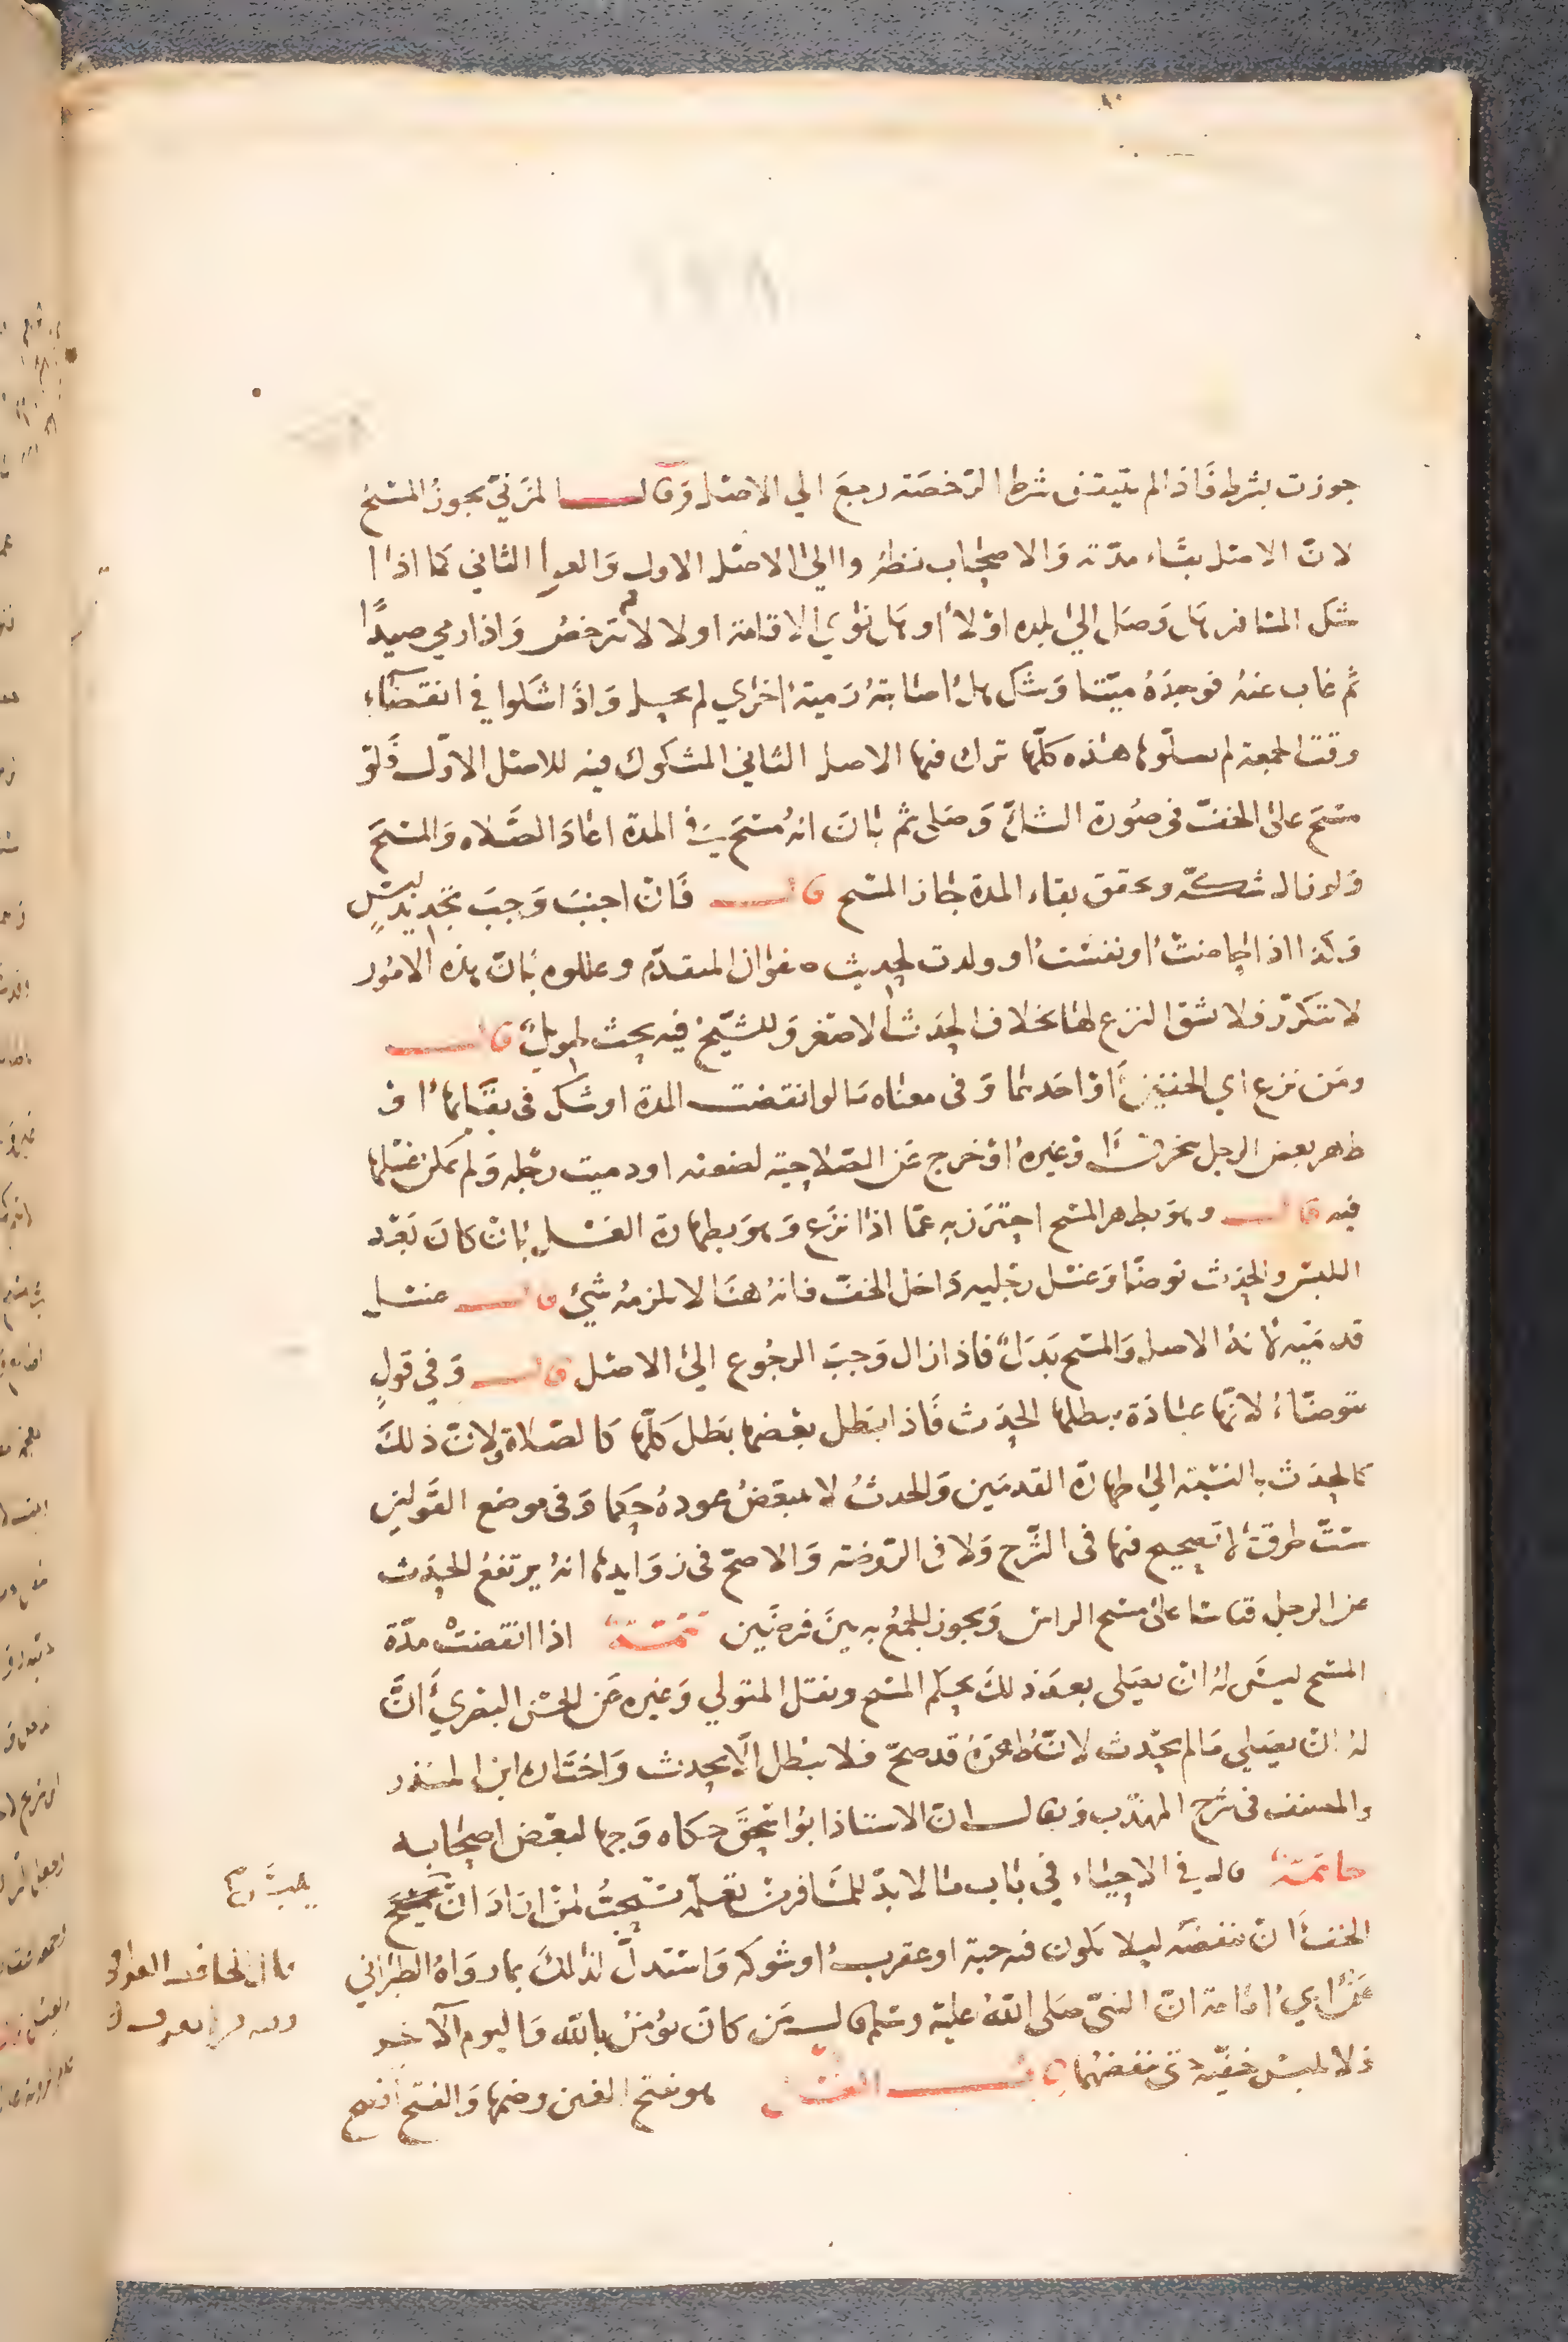 جوزت بشرط فاذا لم يتيقن شرط الرخصة رجع الي الاصل وقال المزني يجوز المسح
لان الاصل بقاء مدته والاصحاب نظروا الي الاصل الاول والغوا الثاني كما اذا
شك المسافر هل وصل الي بلده اولا او هل نوي الاقامة اولا لا يترخص واذا رمي صيدا
ثم غاب عنه فوجده ميتا وشك هل اصابته رمية اخري لم يحل واذا شكوا في انقضاء
وقت الجمعة لم يصلوها هذه كلها ترك فيها الاصل الثاني المشكوك فيه للاصل الاول فلو
مسح على الخف في صورة الشك وصلى ثم بان انه مسح في المدة اعاد الصلاه والمسح
ولو زال شكه وتحقق بقاء المدة جاز المسح قال فان اجنب وجب تجديد لبس
وكذا اذا حاضت او نفست او ولدت لحديث صفوان المتقدم وعللوه بان هذه الامور
لا تتكرر فلا يشق النزع لها بخلاف الحدث الاصغر وللشيخ فيه بحث طويل قال
ومن نزع اي الخفين او احدهما وفي معناه ما لو انقضت المدة او شك في بقائها او
ظهر بعض الرجل بتخرق او غيره او خرج عن الصلاحية لضعفه او دميت رجله ولم يمكن غسلها
فيه قال وهو بطهر المسح احترز به عما اذا نزع وهو بطهارة الغسل بان كان بعد
اللبس والحدث توضا وغسل رجليه داخل الخف فانه هنا لا يلزمه شيئ قال غسل
قدميه لانه الاصل والمسح بدل فاذا زال وجب الرجوع الي الاصل قال وفي قول
يتوضاء لانها عبادة يبطلها الحدث فاذا بطل بعضها بطل كلها كالصلاة ولان ذلك
كالحدث بالنسبة الي طهارة القدمين والحدث لا يتبعض عوده حكما وفي موضع القولين
ست طرق لا تصحيح فيها في الشرح ولا في الروضة والاصح في زوايدها انه يرتفع الحدث
عن الرجل قياسا على مسح الراس ويجوز الجمع به بين فرضين تتمة اذا انقضت مدة
المسح ليس له ان يصلى بعد ذلك بحكم المسح ونقل المتولي وغيره عن الحسن البصري ان
له ان يصلي ما لم يحدث لان طهره قد صح فلا يبطل الا بحدث واختاره ابن المنذر
والمصنف في شرح المهذب ويقال ان الاستاذ ابو اسحق حكاه وجها لبعض اصحابه
خاتمة قال في الاحياء في باب ما لا بد للمسافر من تعلمه يستحب لمن اراد ان
يلبس
الخف ان ينفضه ليلا يكون فيه حية او عقرب او شوكه واستدل لذلك بما رواه الطبراني
عن ابي امامة ان النبي صلى الله عليه وسلم قال من كان يؤمن بالله واليوم الآخر
فلا يلبس خفيه حتى ينفضهما باب الغسل هو بفتح الغين وضمها والفتح افصح
قال الحافظ العراقي